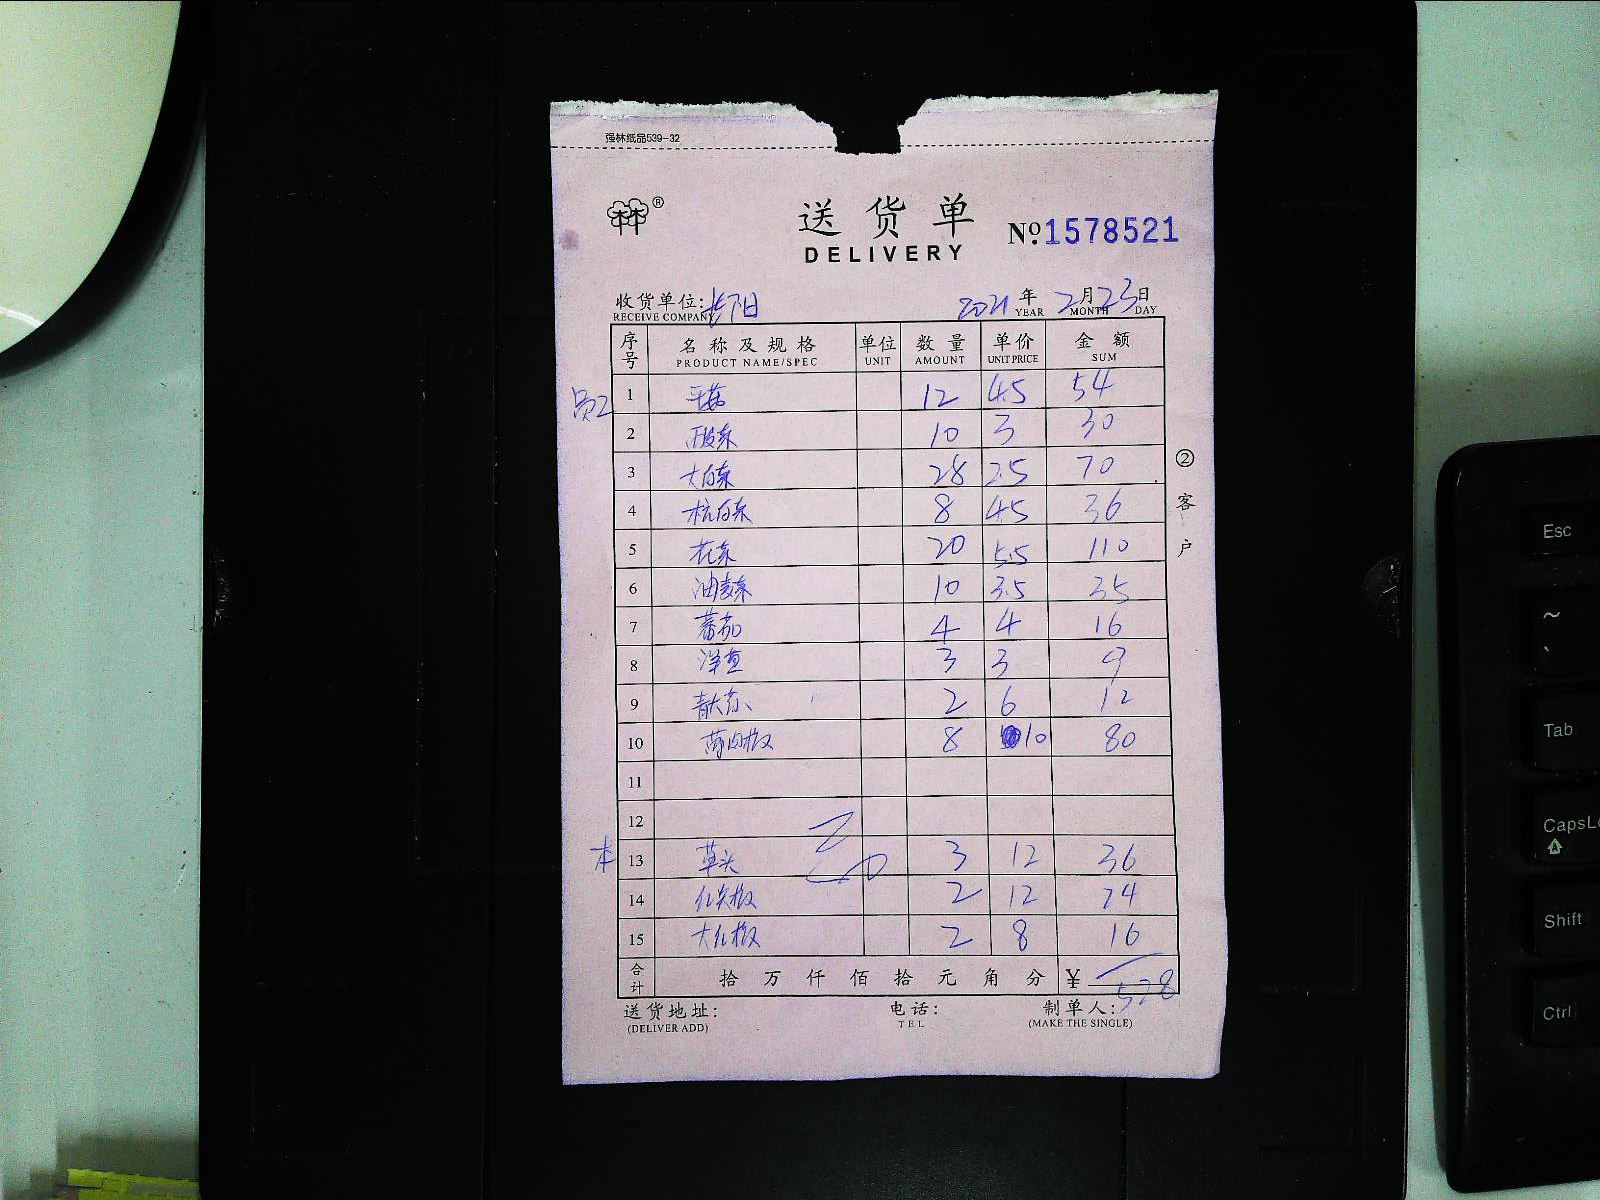 强林纸品539-32
林®
送货单
DELIVERY
Nº1578521
收货单位:长阳 2021年2月23日
RECEIVE COMPANY YEAR MONTH DAY
序号 名称及规格 单位 数量 单价 金额
PRODUCT NAME/SPEC UNIT AMOUNT UNIT PRICE SUM
员工 1 平菇 12 4.5 54
2 10 3 30
3 大白菜 28 2.5 70
4 杭白菜 8 4.5 36
5 花菜 20 5.5 110
6 油麦菜 10 3.5 35
7 蕃茄 4 4 16
8 洋葱 3 3 9
9 青大蒜 2 6 12
10 薄肉椒 8 10 80
11
12
本 13 草头 3 12 36
14 红尖椒 2 12 24
15 大红椒 2 8 16
合计 拾万仟佰拾元角分 ¥528
②客户
送货地址: 电话: 制单人:
(DELIVER ADD) TEL (MAKE THE SINGLE)
Esc
~
Tab
CapsLo
Shift
Ctrl